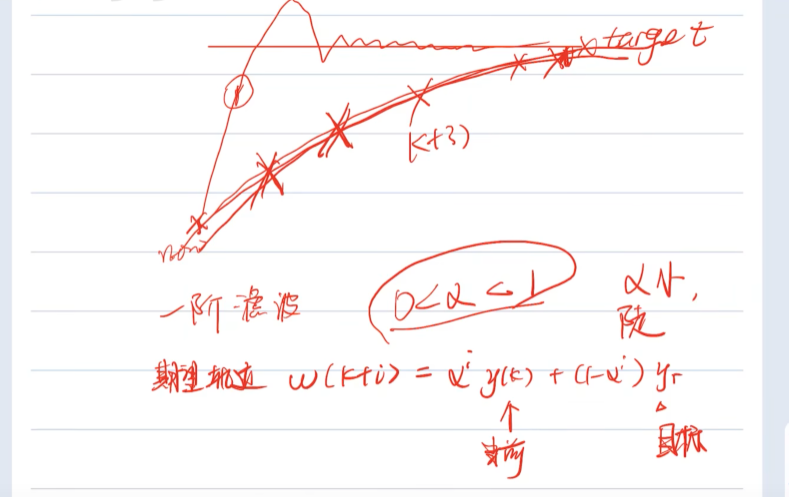 target
k+3)
now
一阶滤波 0<α<1 α小,
陡
期望轨迹 w(k+i) = αⁱ y(k) + (1-αⁱ) yr
当前
目标